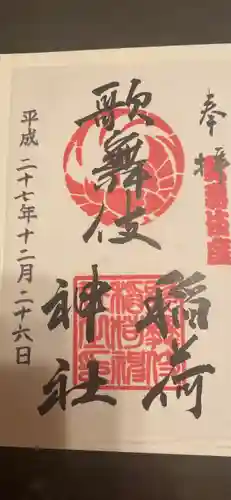 奉拝
歌舞伎座
歌舞伎
稲荷
神社
平成二十七年十二月二十六日